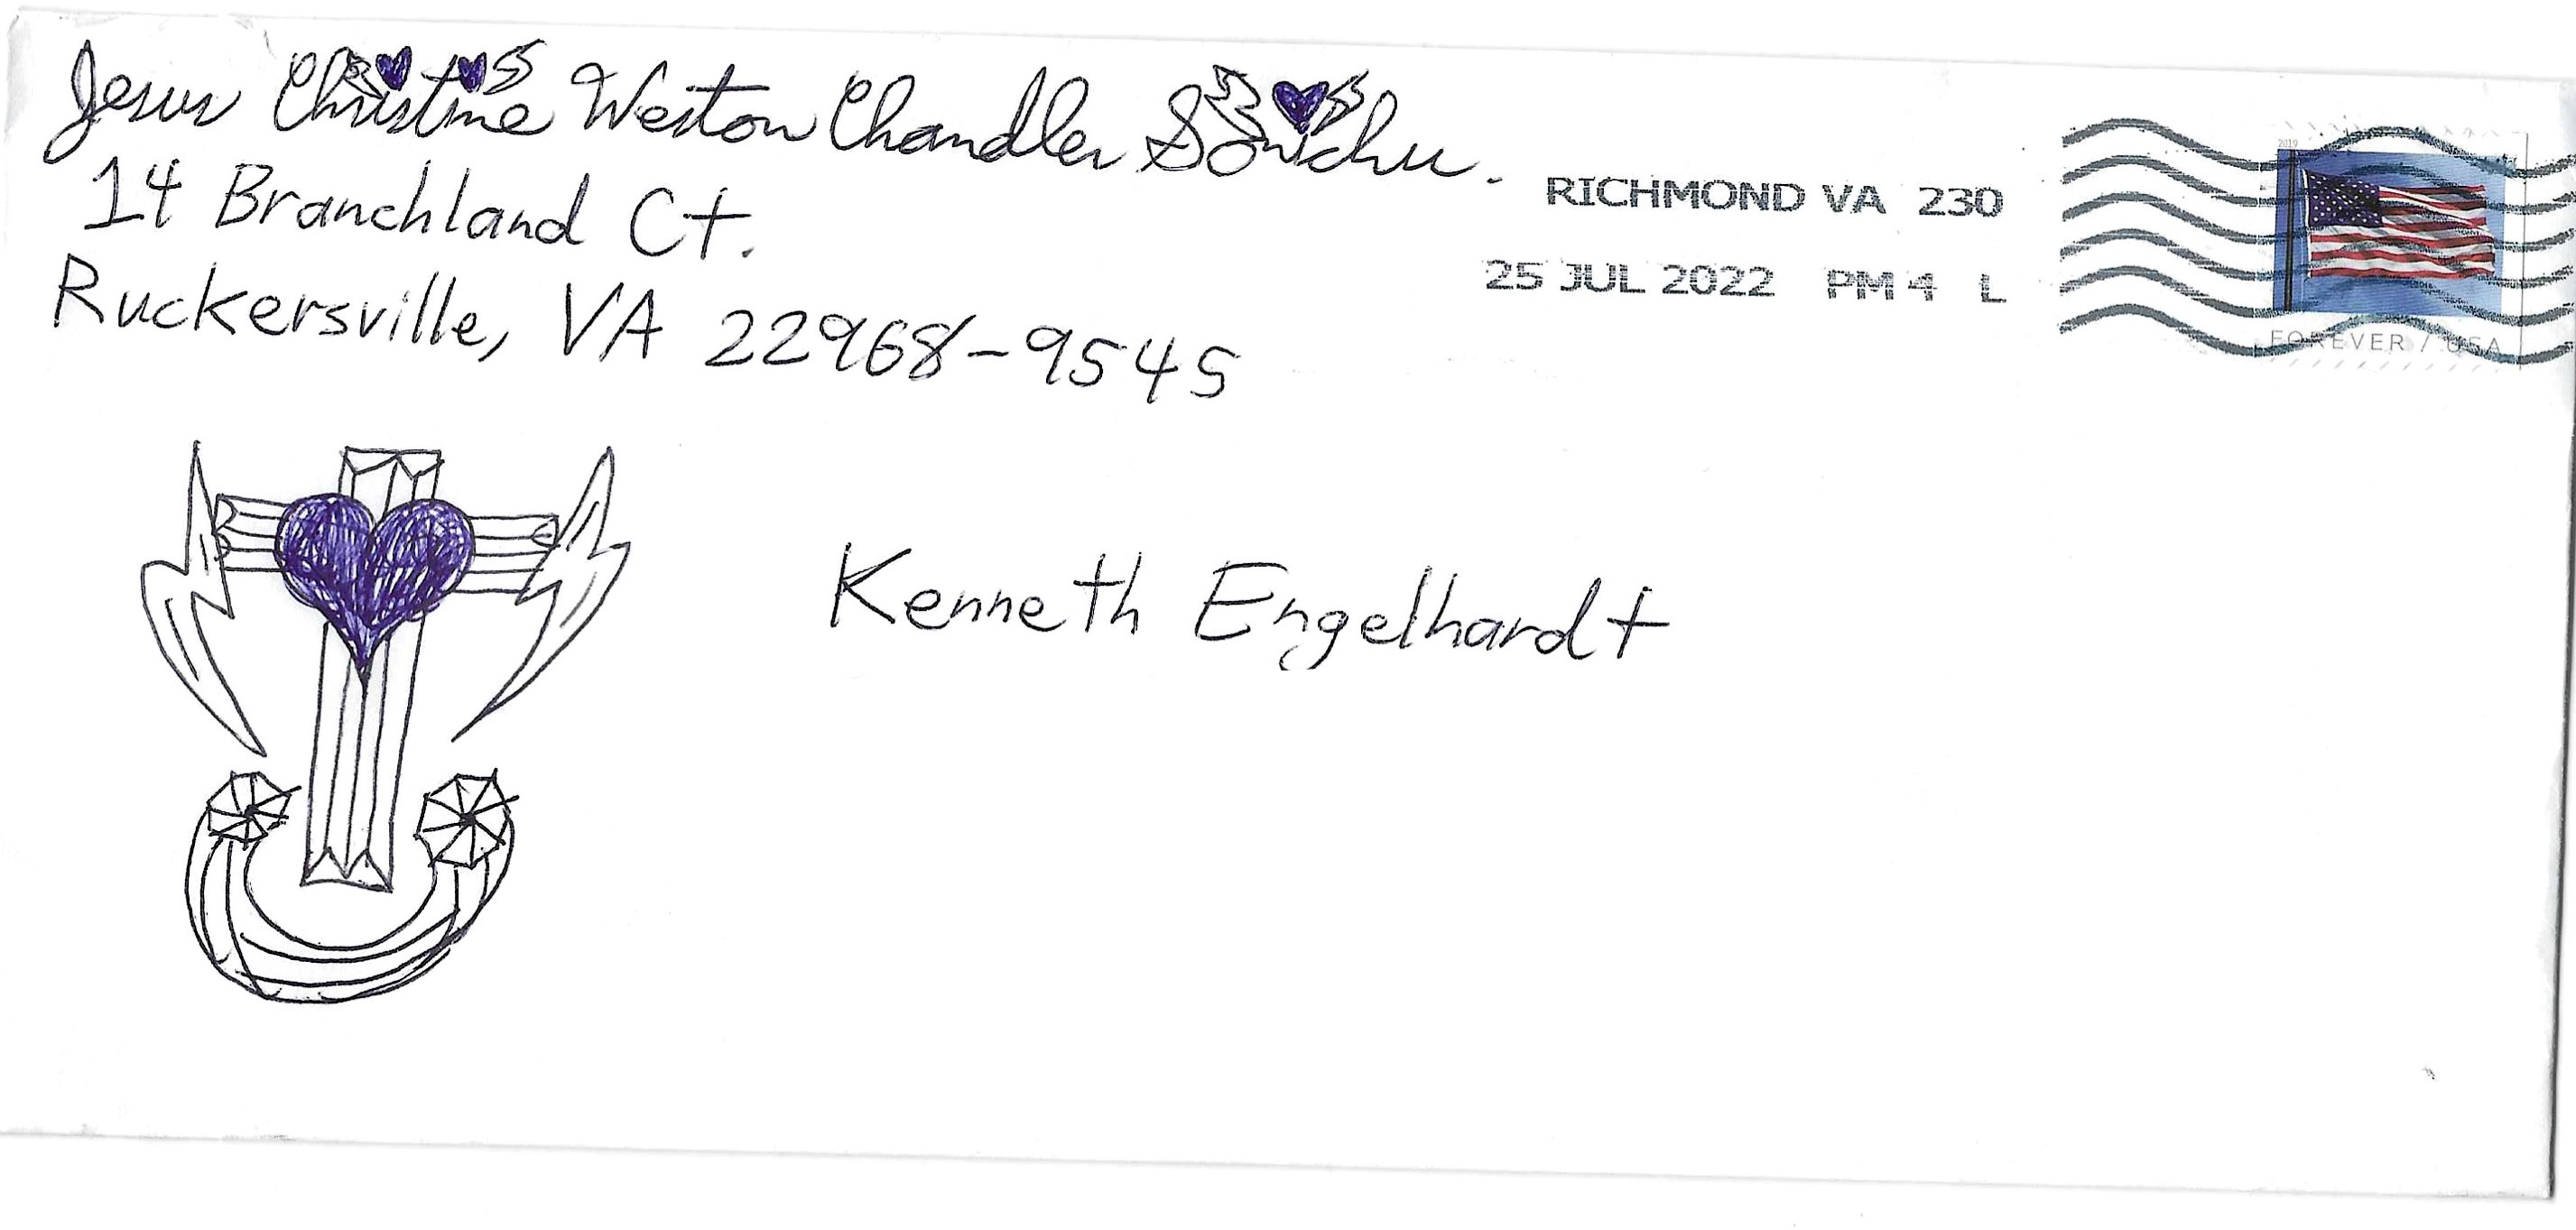 Jesus Christine Weston Chandler Sonichu.
14 Branchland Ct.
Ruckersville, VA 22968-9545
RICHMOND VA 230
25 JUL 2022 PM 4 L
2019
FOREVER / USA
Kenneth Engelhardt